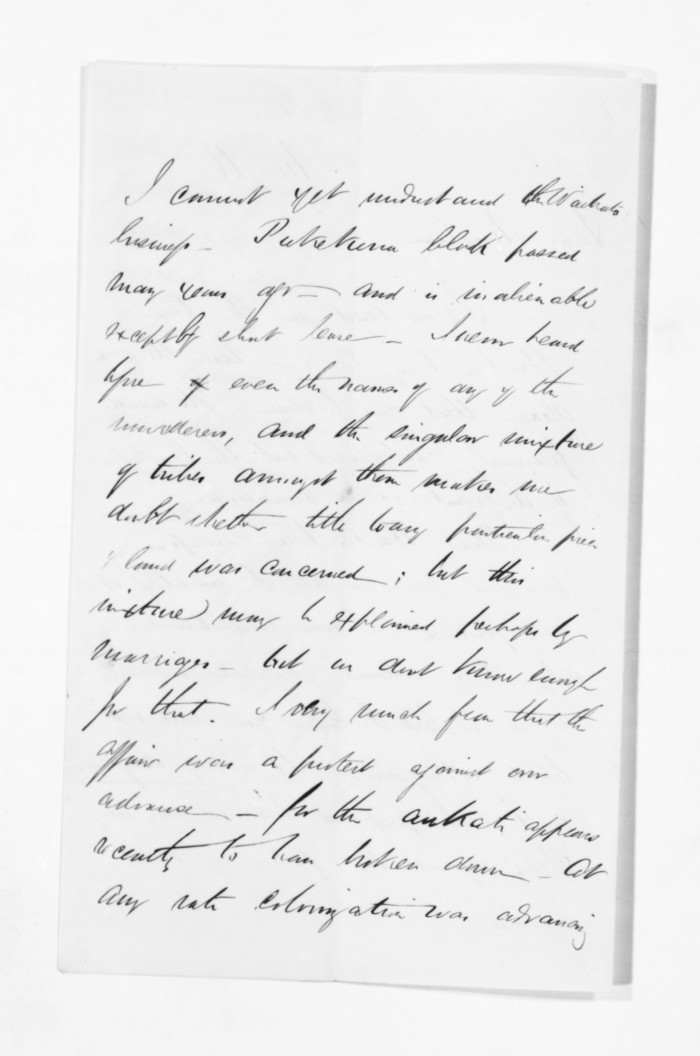 I cannot yet understand the Waikato
business - Pukekura block passed
many years ago - and is inalienable
except by short lease - I never heard
before of even the names of any of the
murderers, and the singular mixture
of tribes amongst them makes me
doubt whether title to any particular piece
of land was concerned ; but this
mixture may be explained perhaps by
marriages - but we don't know enough
for that. I very much fear that the
affair was a protest against our
advance - for the aukati appears
recently to have broken down - At
any rate colonization was advancing